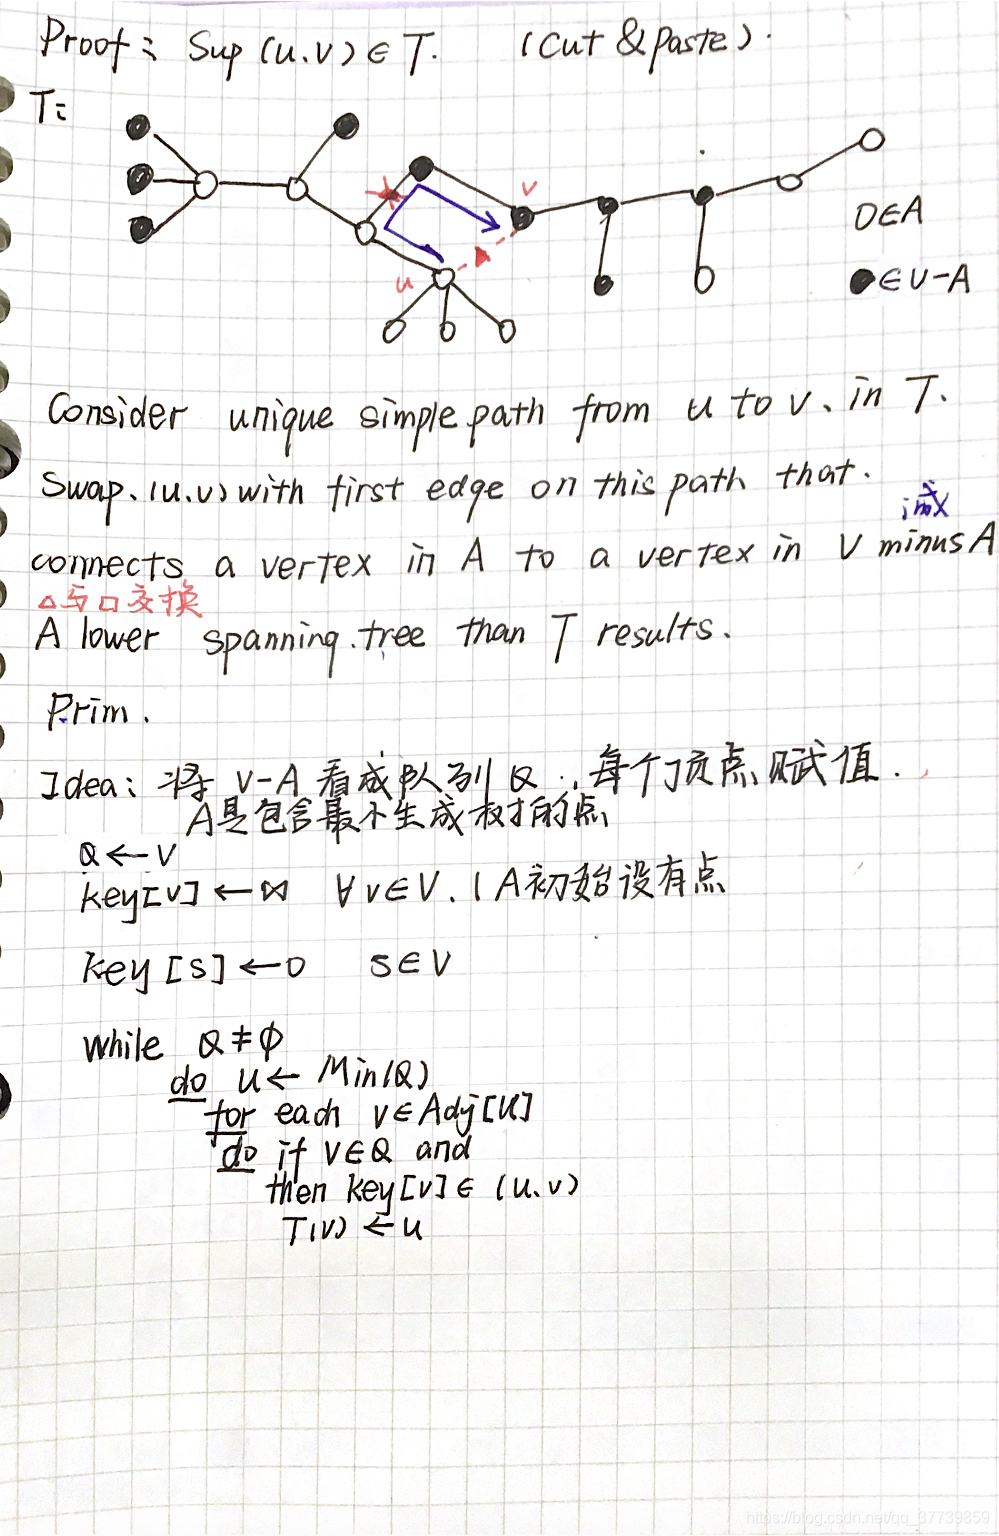 Proof: Sup (u.v) ∈ T. (Cut & paste).
T:
v
O∈A
u
●∈V-A
Consider unique simple path from u to v. in T.
Swap. (u.v) with first edge on this path that.
减
connects a vertex in A to a vertex in V minus A
△与□交换
A lower spanning.tree than T results.
Prim.
Idea: 将 V-A 看成队列 Q. 每个顶点赋值.
A是包含最小生成树的点
Q ← V
key[v] ← ∞ ∀v∈V. (A初始设有点
key[s] ← 0 s∈V
While Q ≠ ∅
do u ← Min(Q)
for each v∈Adj[u]
do if v∈Q and
then key[v] ∈ (u.v)
T(v) ← u
https://blog.csdn.net/qq_37739859